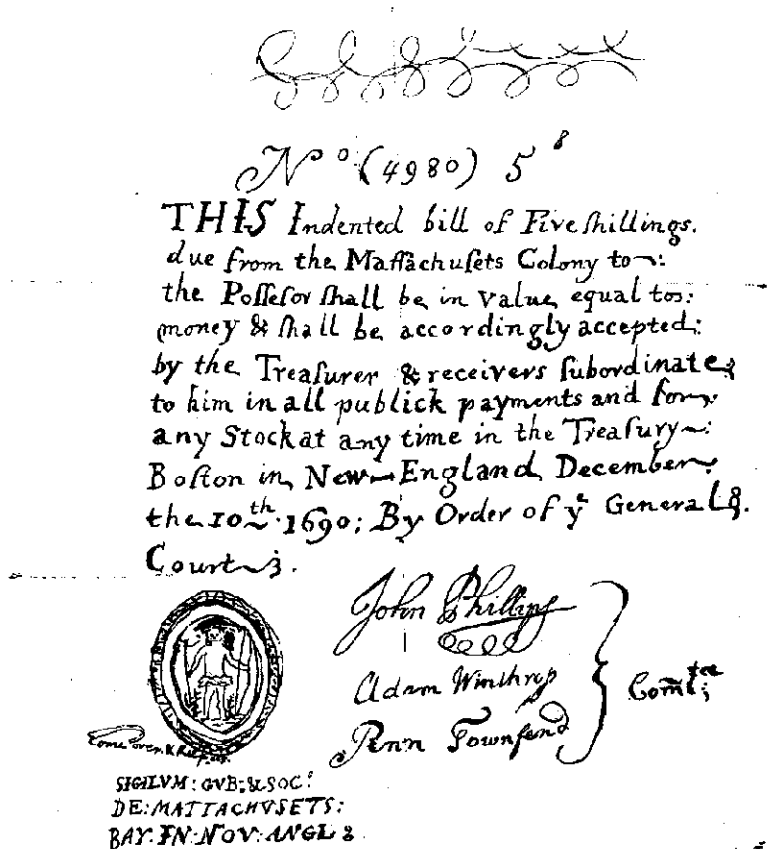 Nº (4980) 5ˢ
THIS Indented bill of Five ſhillings.
due from the Maſſachuſets Colony to:
the Poſſeſor ſhall be in value equal to:
money & ſhall be accordingly accepted:
by the Treaſurer & receivers ſubordinate
to him in all publick payments and for
any Stock at any time in the Treaſury:
Boſton in New-England December
the 10th. 1690; By Order of yᵉ General
Court.
John Phillips
Adam Winthrop
Penn Townſend
Comtee;
Come over & help us.
SIGILVM: GVB: & SOC:
DE: MATTACHVSETS:
BAY: IN: NOV: ANGL